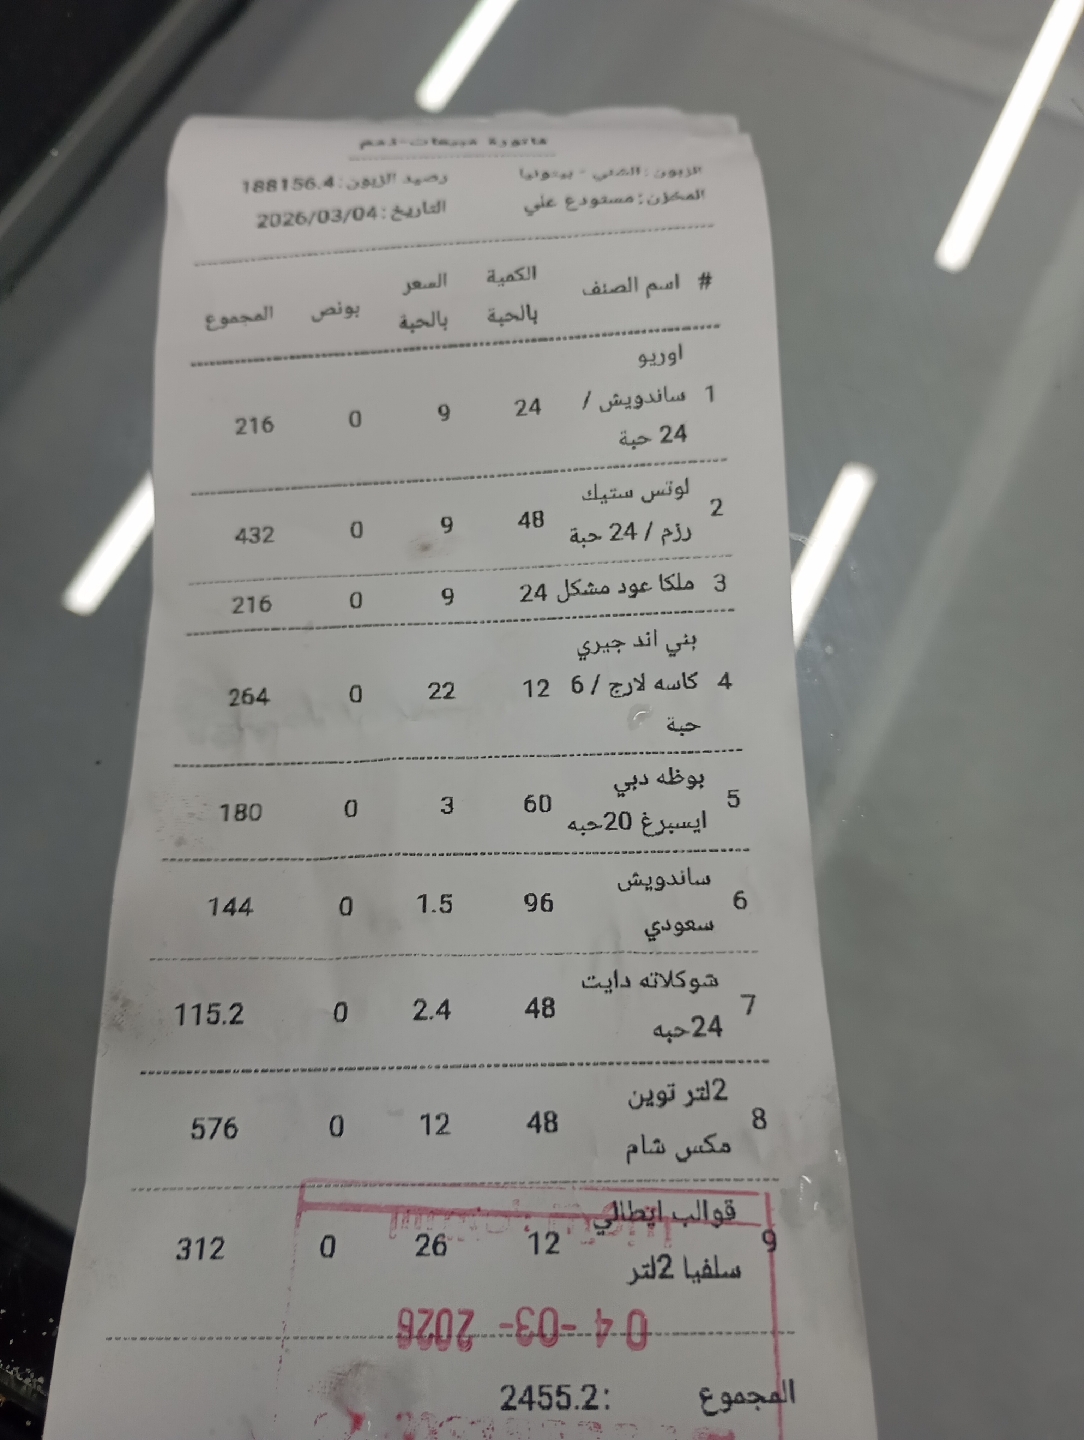 فاتورة مبيعات-ذمم
الزبون: الشني - بيتونيا رصيد الزبون: 188156.4
المخزن: مستودع علي التاريخ: 2026/03/04
# اسم الصنف الكمية بالحبة السعر بالحبة بونص المجموع
1 اوريو ساندويش / 24 حبة 24 9 0 216
2 لوتس ستيك رزم / 24 حبة 48 9 0 432
3 ملكا عود مشكل 24 9 0 216
4 بني اند جيري كاسه لارج / 6 حبة 12 22 0 264
5 بوظه دبي ايسبرغ 20حبه 60 3 0 180
6 ساندويش سعودي 96 1.5 0 144
7 شوكلاته دايت 24حبه 48 2.4 0 115.2
8 2لتر توين مكس شام 48 12 0 576
9 قوالب ايطالي سلفيا 2لتر 12 26 0 312
04-03-2026
المجموع :2455.2